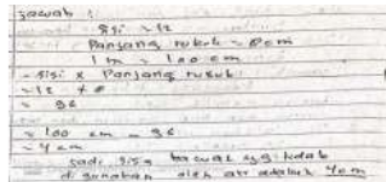 Jawab :
sisi = 12
Panjang rusuk = 8cm
1 m = 100 cm
- sisi x Panjang rusuk
= 12 x 8
= 96
= 100 cm - 96
= 4 cm
Jadi sisa kawat yg tidak
di gunakan oleh adalah 4cm